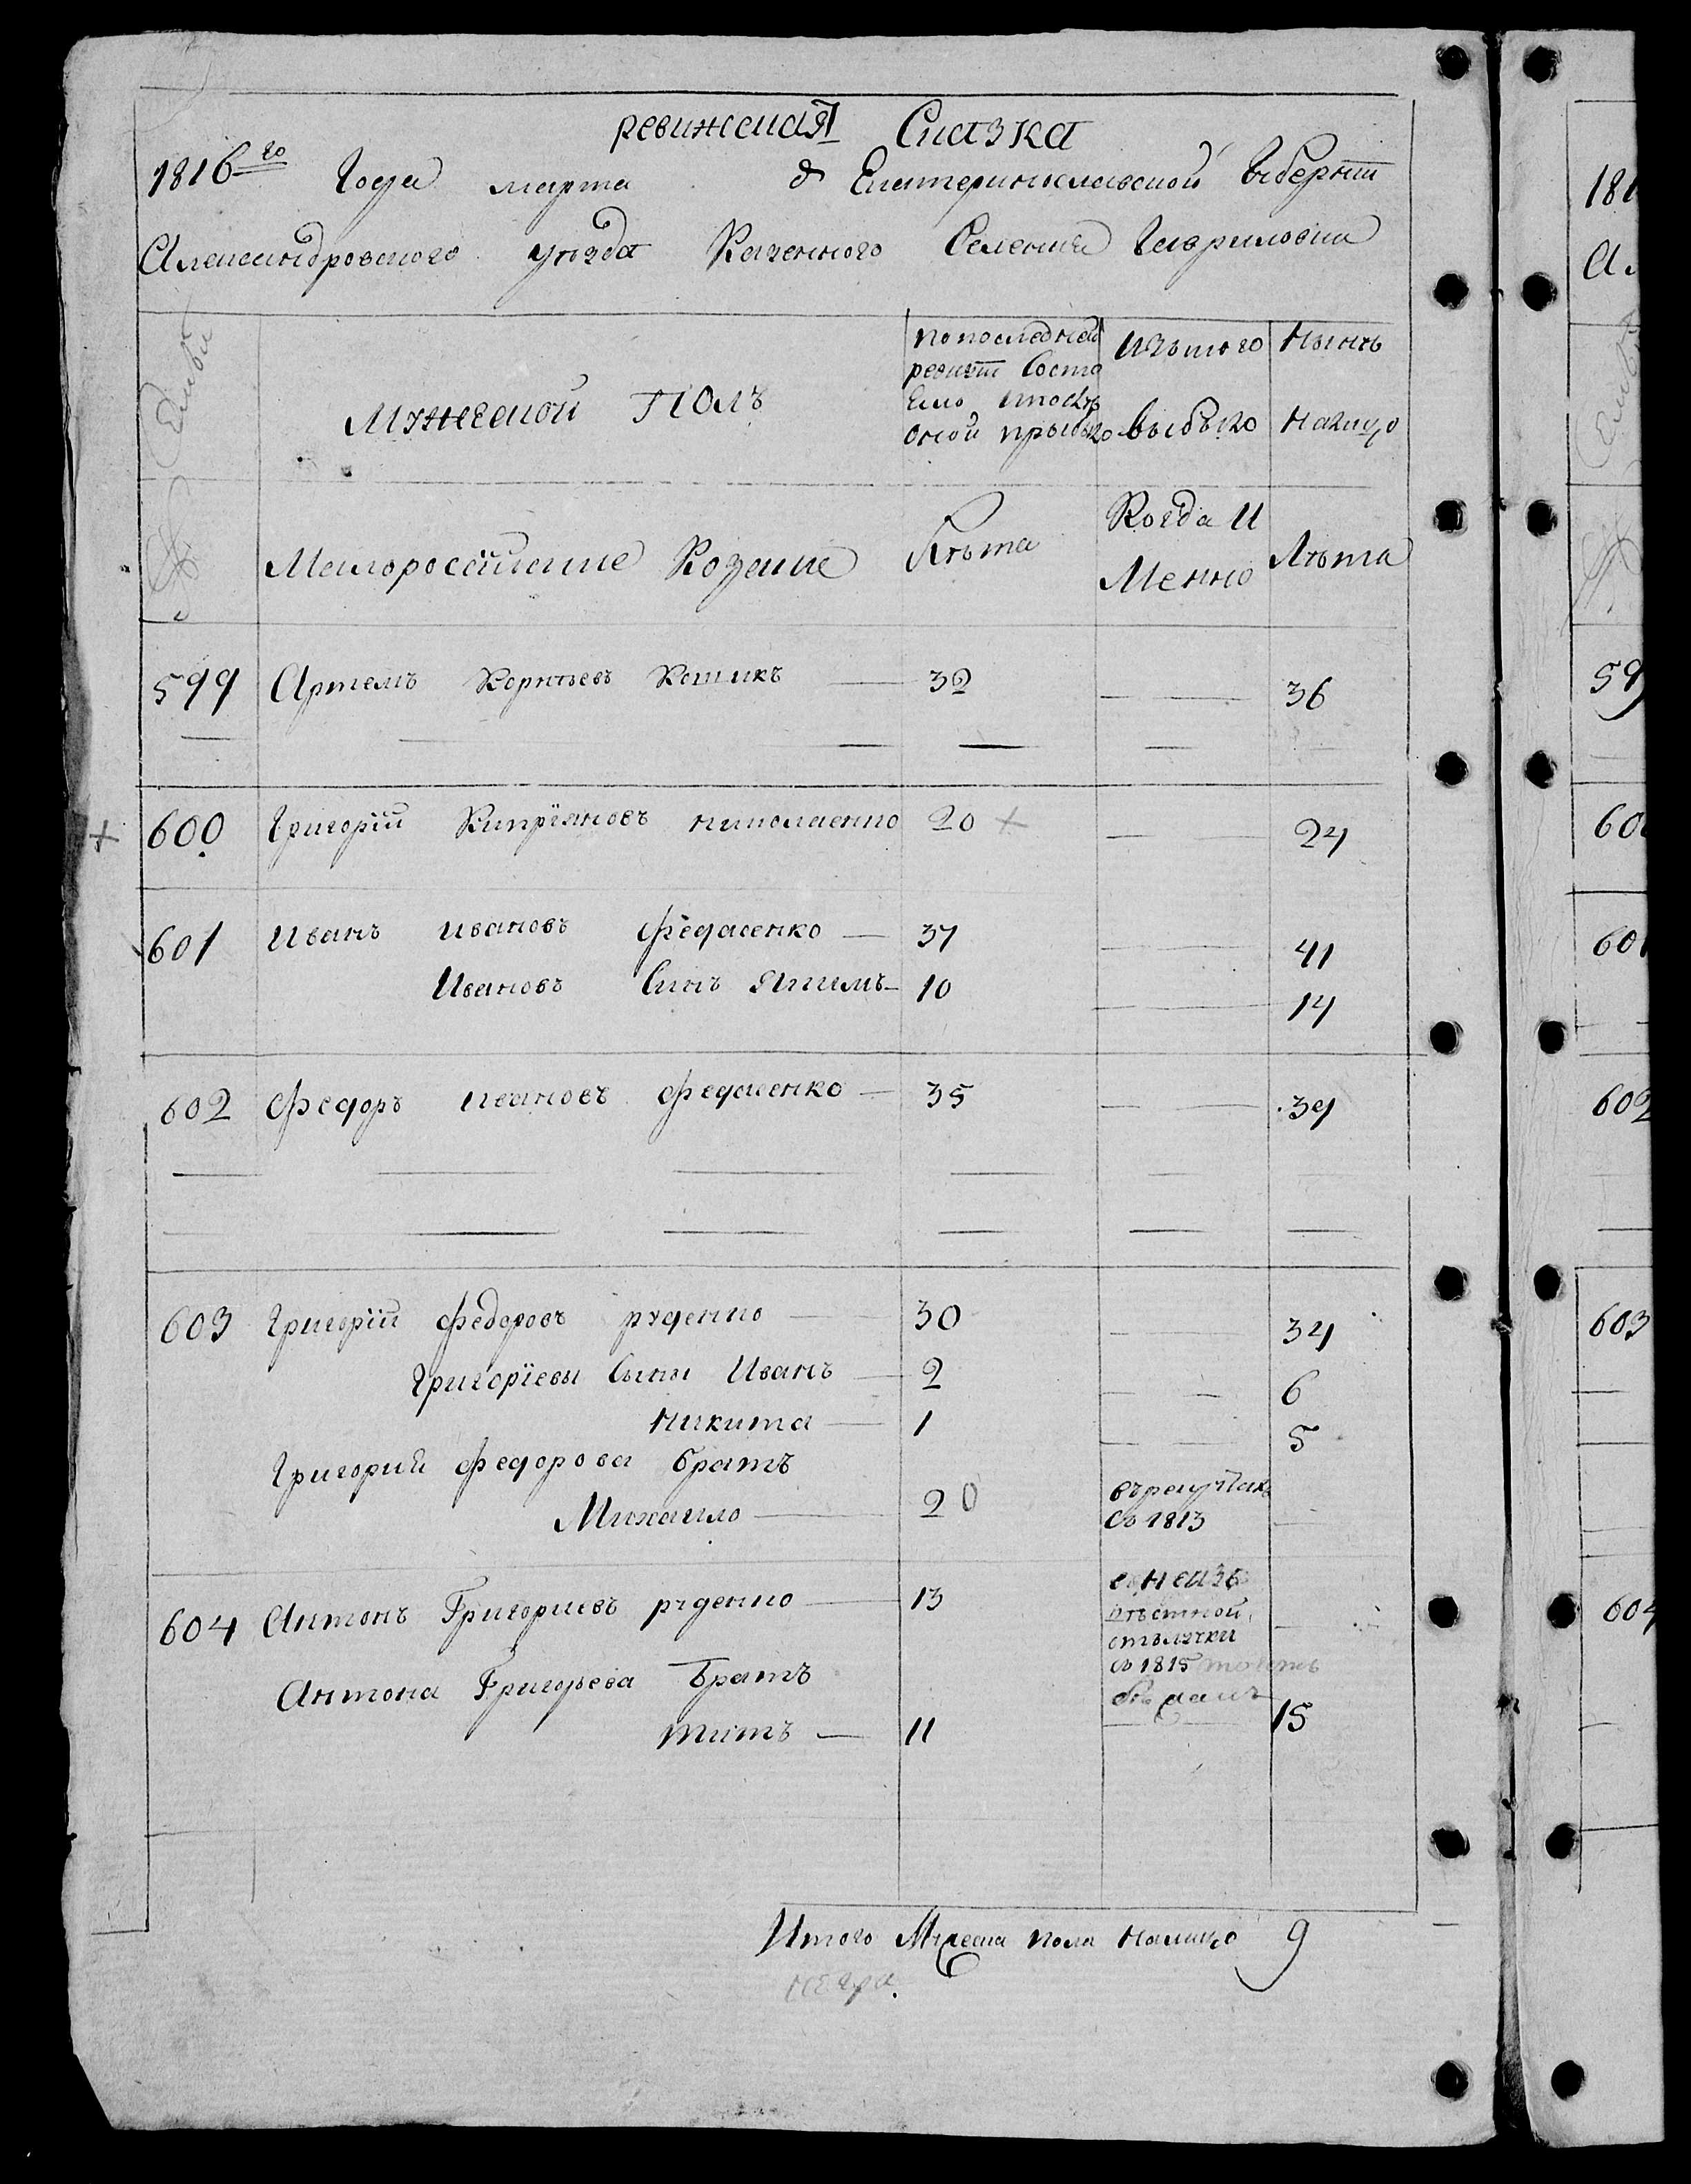 ревижская Сказка
1816го Года марта д Екатеринославской Губернїи
Александровского уѣзда Казенного Селения Гавриловки
Мужеской Полъ
По последней ревизїи Состо
яло ипослѣ
оной прибыло
Изътого выбыло
Нынѣ налицо
Семьи
Малоросейские Козаки
Лѣта
Когда И
Менно
Лѣта
599 Артемъ Корнѣевъ Кошикъ 32 36
600 Григорїй Кипрїяновъ николаенко 20 24
601 Иванъ ивановъ Федасенко 37 41
Ивановъ Синъ Якимъ 10 14
602 Федоръ ивановъ Федасенко 35 39
603 Григорїй Федоровъ руденко 30 34
Григорїевы Сыни Иванъ 2 6
Никита 1 5
Григорий Федорова братъ
Михаило 20 въ 1813
604 Антонъ Григориевъ руденко 13 въ неизвѣстной
отълучки
съ 1815
Антона Григорьева Братъ
титъ 11 15
Итого Мужеска пола налицо 9
181
А
59
600
601
602
603
604